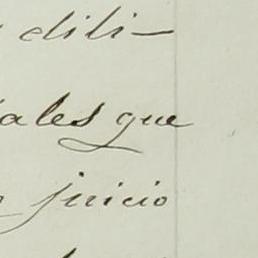 dili-
ales que
juicio